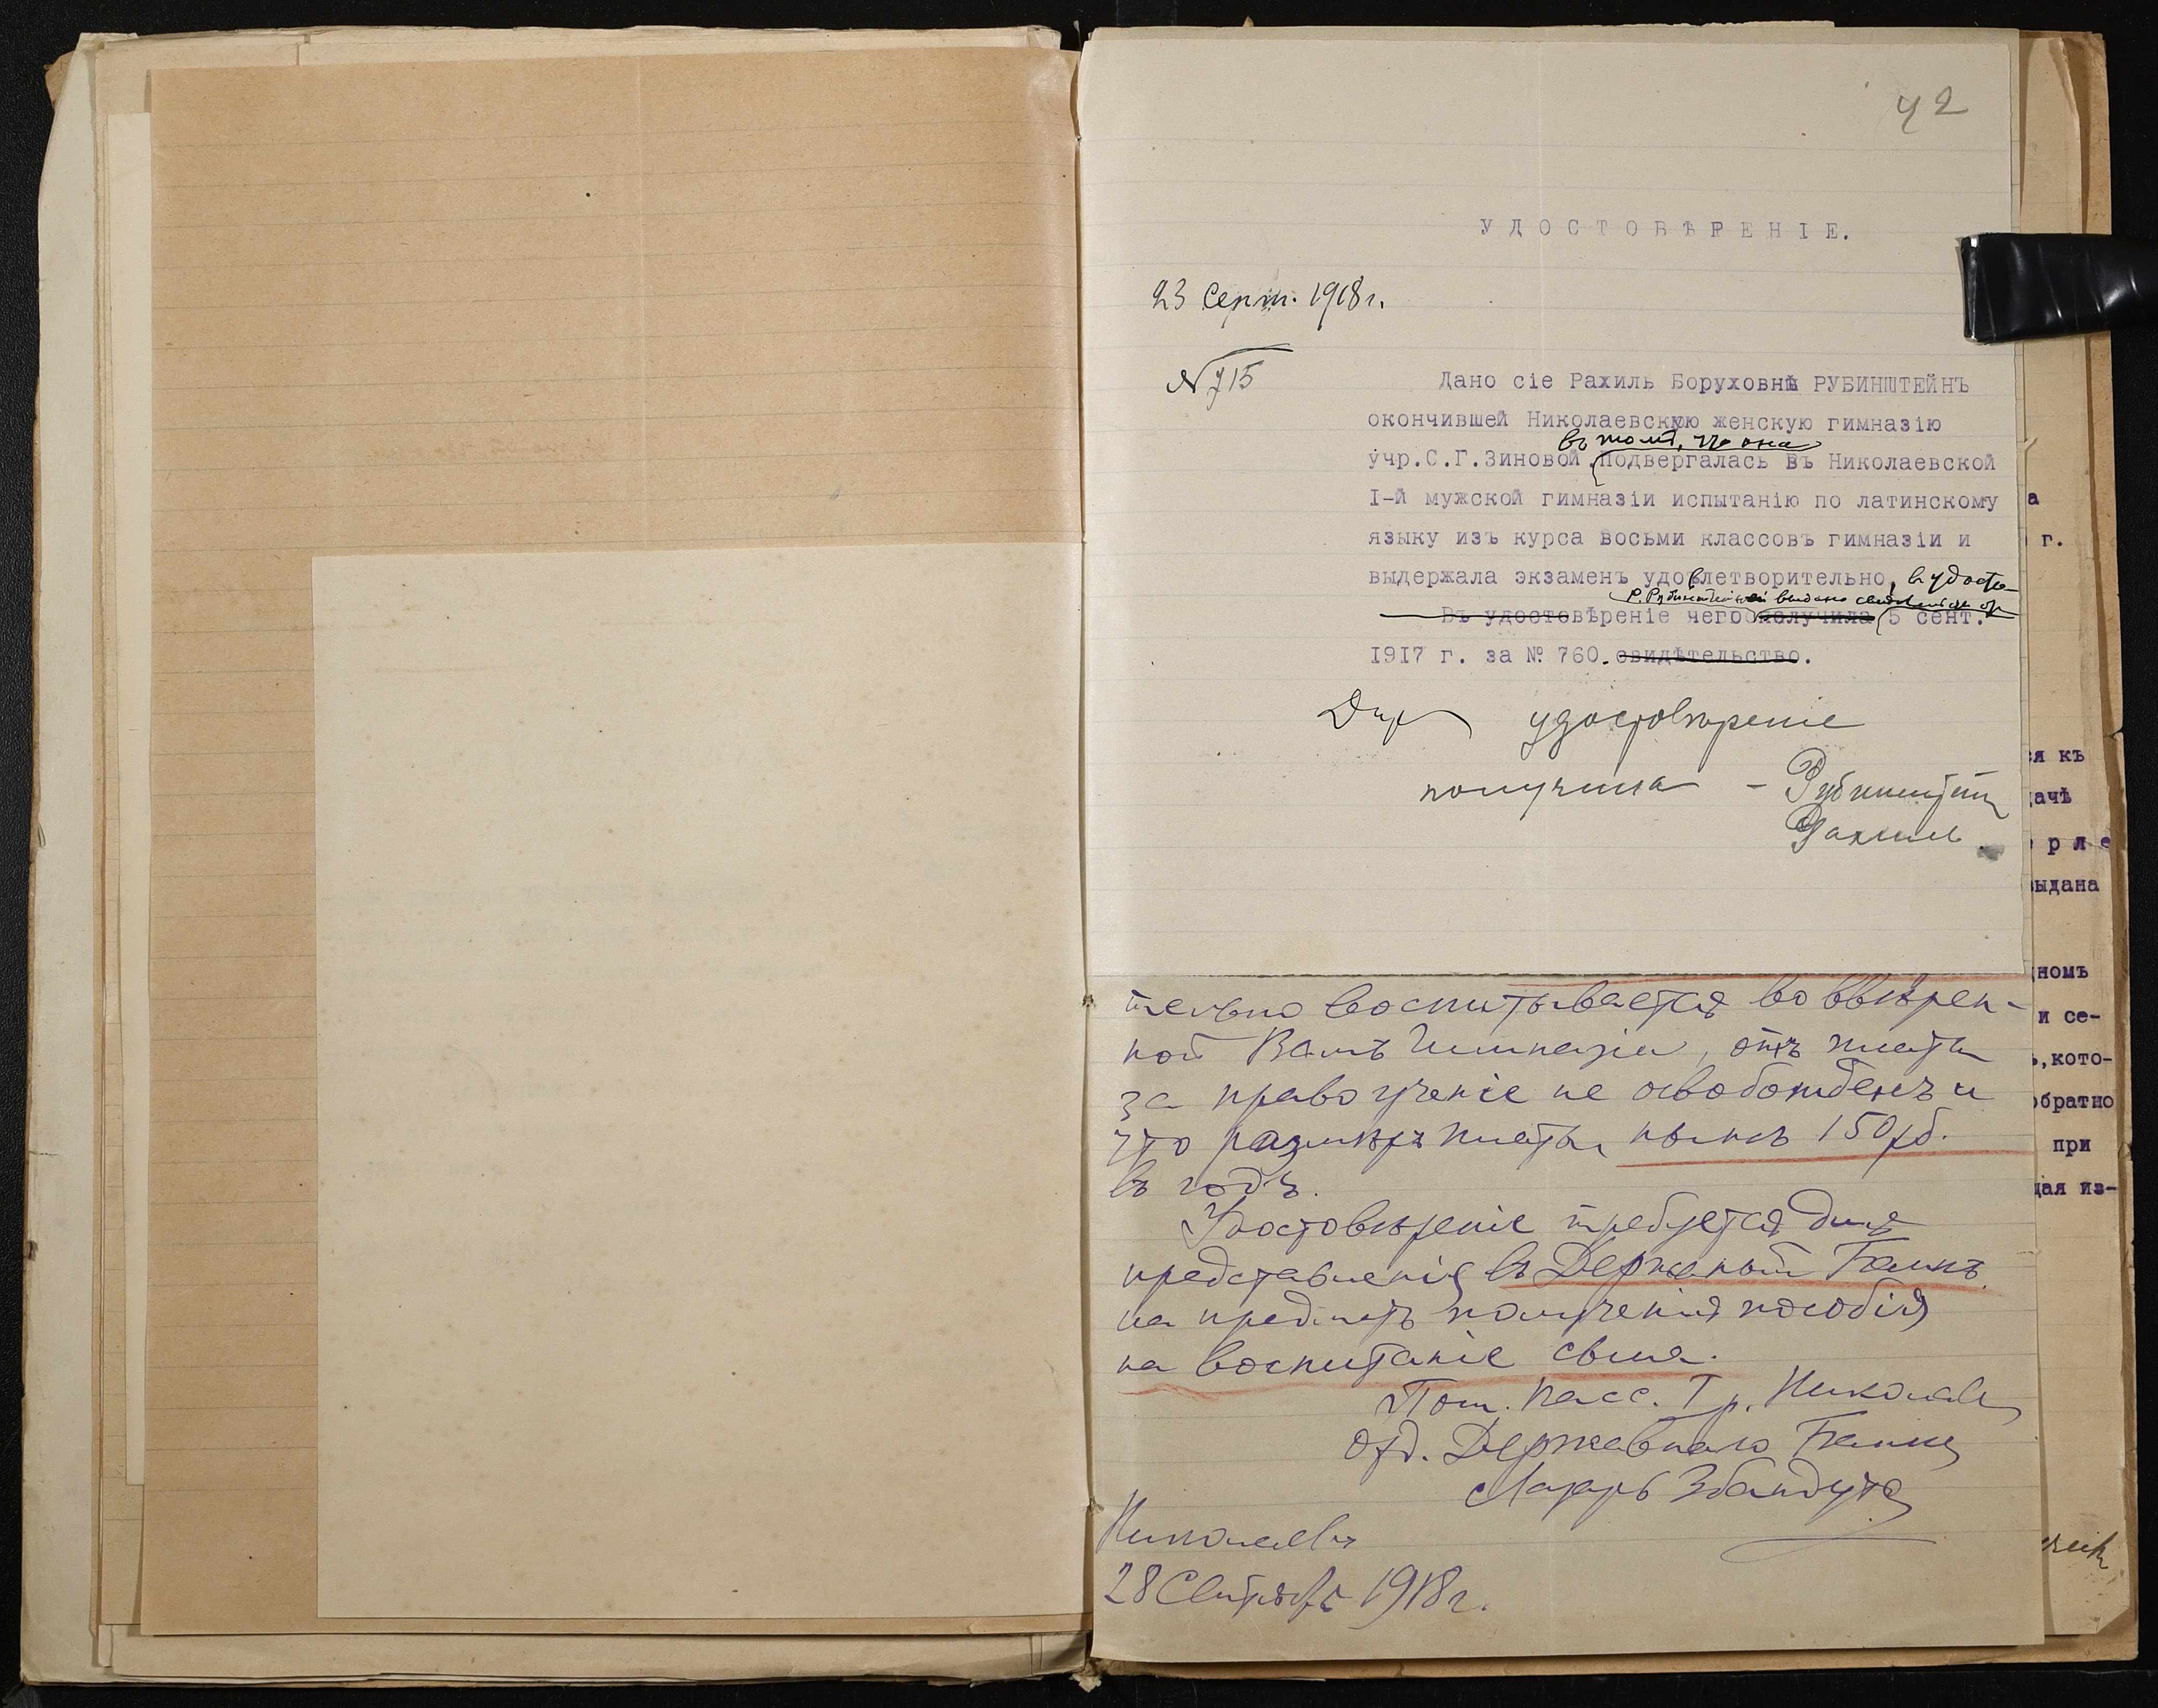 42
УДОСТОВѢРЕНІЕ.
23 Сент. 1918 г.
№ 715
Дано сіе Рахиль Боруховнѣ РУБИНШТЕЙНЪ
окончившей Николаевскую женскую гимназію
въ томъ, что она
учр.С.Г.Зиновой подвергалась въ Николаевской
I-й мужской гимназіи испытанію по латинскому
языку изъ курса восьми классовъ гимназіи и
выдержала экзаменъ удовлетворительно, въ удосто-
Р. Рубинштейнъ выдано свидѣтельство от
Въ удостовѣреніе чего получила 5 сент.
1917 г. за № 760. свидѣтельство.
Дир удостовѣреніе
получила – Рубинштейнъ
Рахиль.
тельно воспитывается во ввѣрен-
ной Вамъ Гимназіи, отъ платы
за правоученіе не освобожденъ и
что размѣръ платы нынѣ 150 рб.
въ годъ.
Удостовѣреніе требуется для
представленія въ Державный Банкъ
на предметъ полученія пособія
на воспитаніе сына.
Пом. Касс. Гр. Николаев
Отд. Державнаго Банка
Лазарь Збандуто
Николаевъ
28 Сентября 1918 г.
а
г.
ся къ
дачѣ
рле
выдана
номъ
и се-
,кото-
обратно
при
щая из-